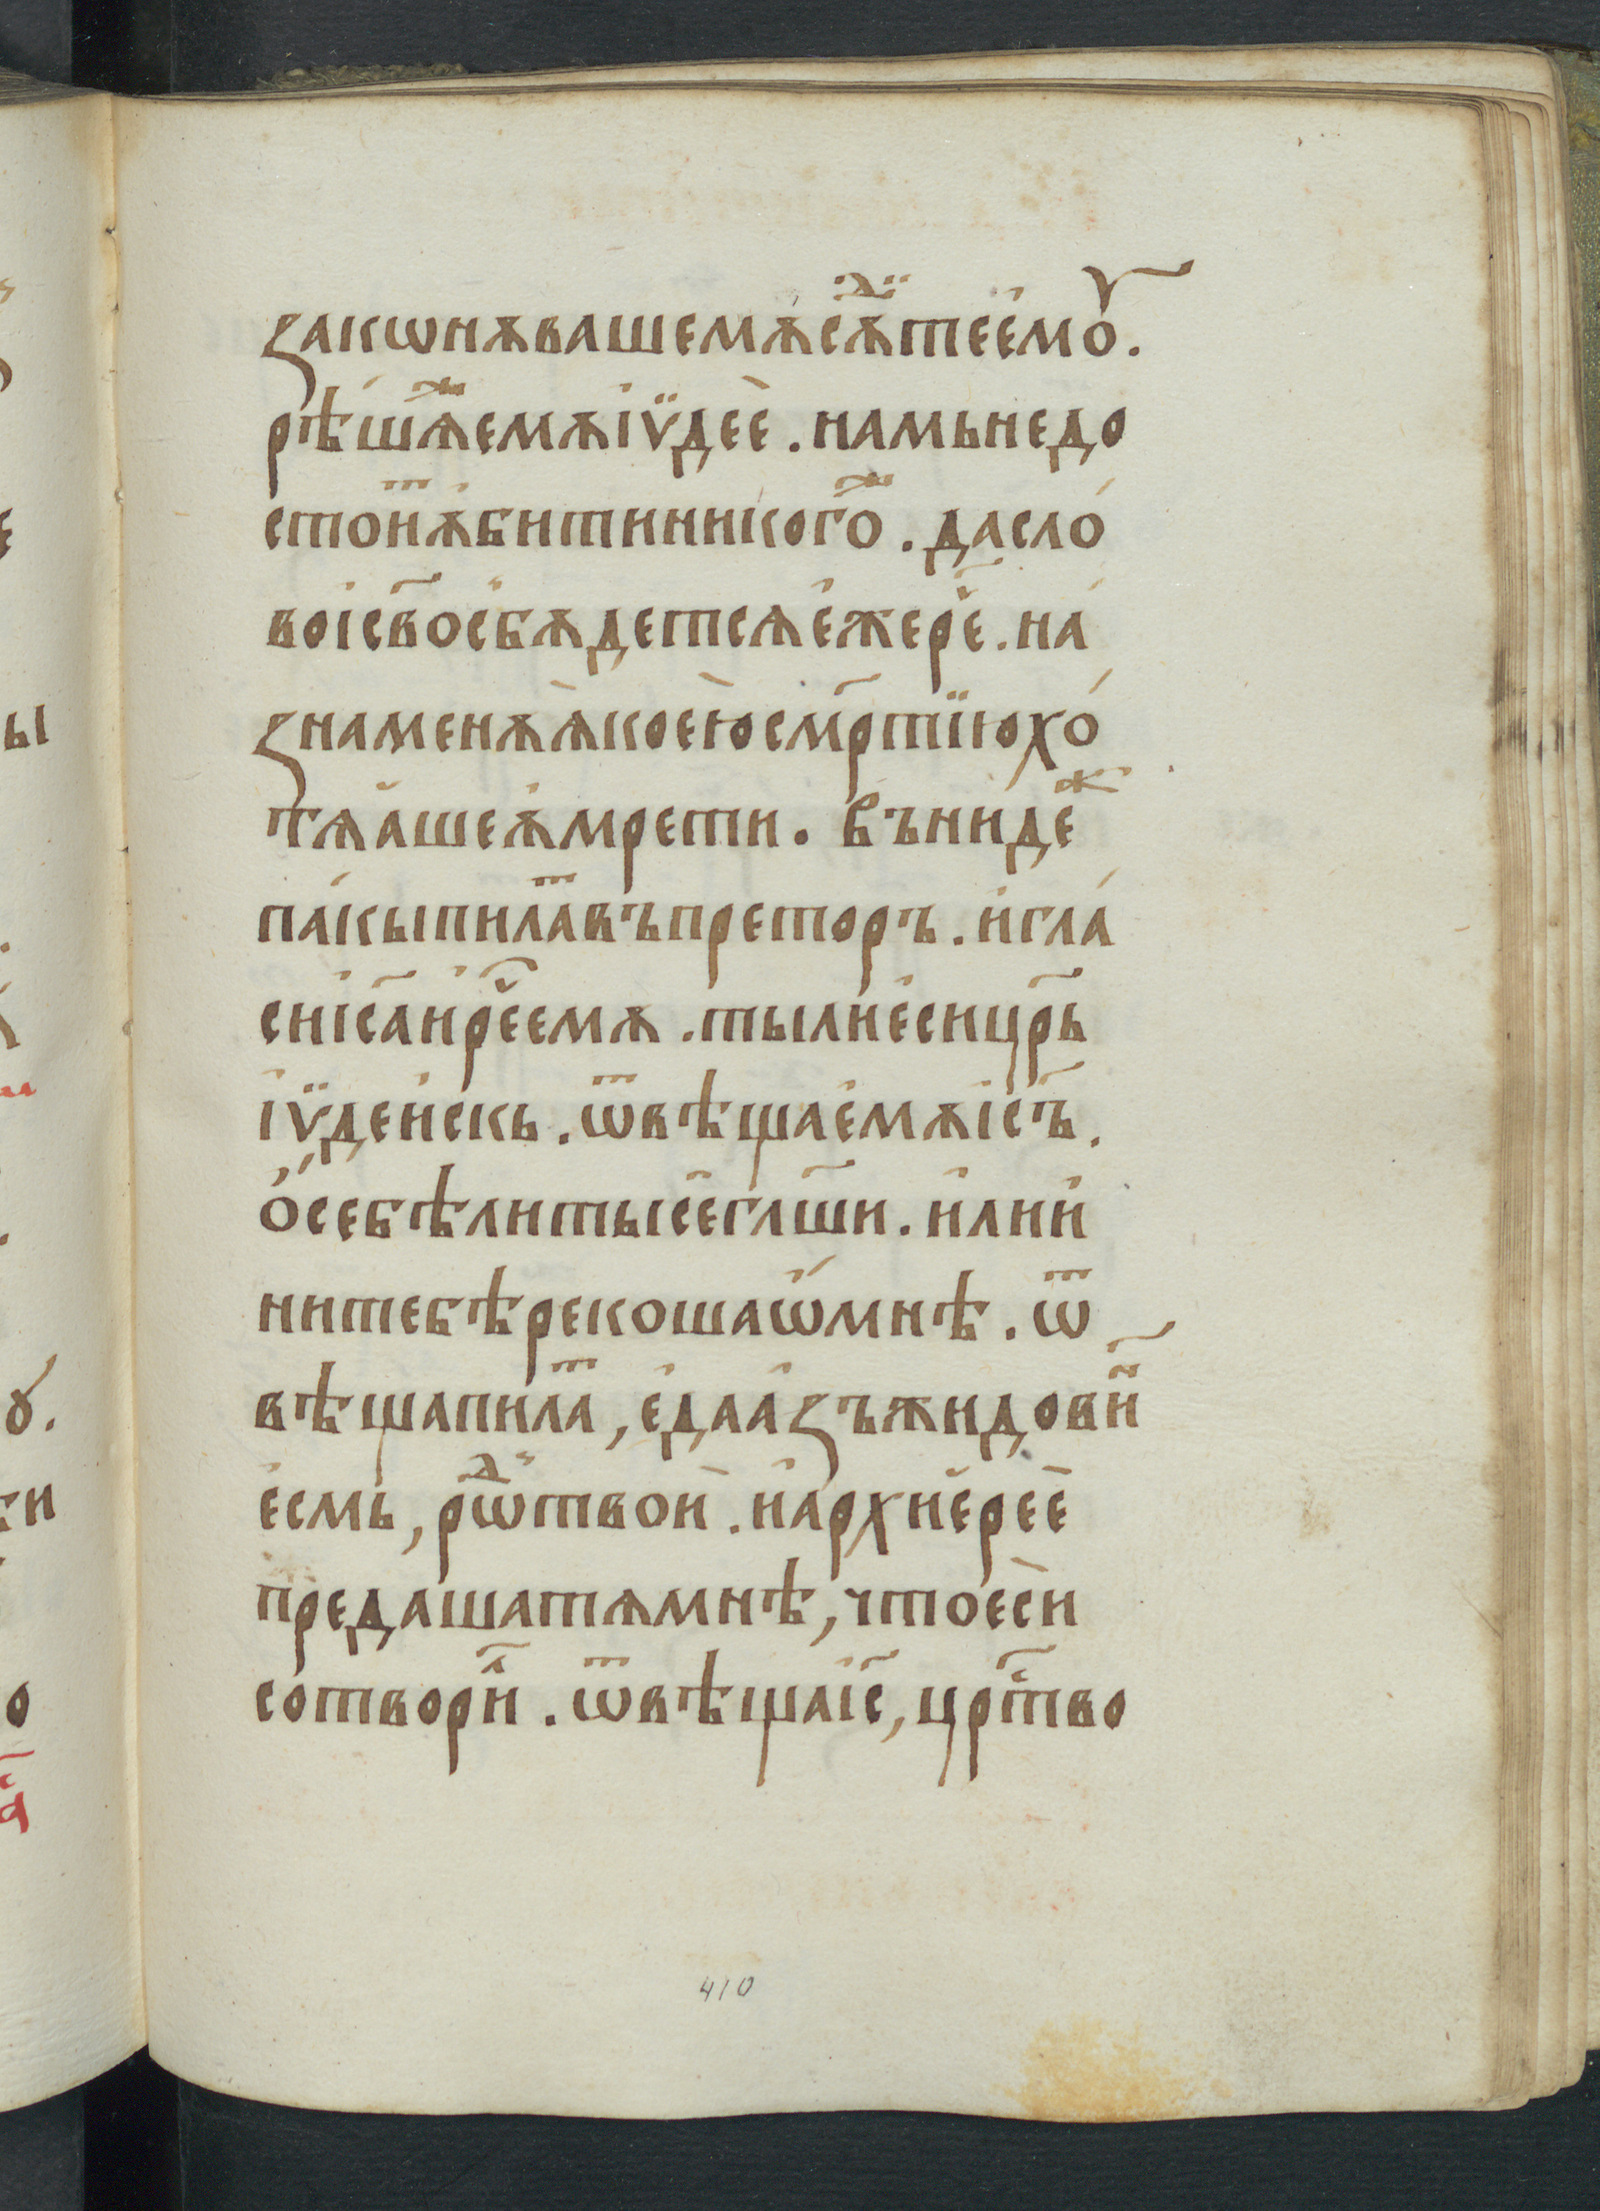 закѡнѫвашемѫ́сѫⷣ҇и́тее҆мо́ᵛ.
рѣ́шѧⷤемѫі҆ѵ̈дее̑. намьнедо
стоиⷮѫ҆битиникогоⷤ. даело́
воі҆св҃оебѫдетсѧе҆жере҇ⷱ. на́
ꙁнаменѫѧ̀коею̀смр҃тїюхо́
тѧа҆шеѫ҆мрети. вънидеⷤ
па́кыпилаⷮвъпреторъ. и҆гла́
сиі҆с҃аи҆ре҇ⷱемѫ. тылие҆сицр҃ь
і҆ѵ̈деи҆скь. ѿвѣщае҆мѫі҆с҃ъ.
о҆́себѣлитысе҆гл҃ши. и҆лии҆
нитебѣрекошаѡ҆́мнѣ. ѿ
вѣщапилаⷮ, е҆даа҆ꙁъжидовиⷩ҇
е҆смь, рѡⷣтвои̑. и҆архие҆рее̑
предашатѧмнѣ, чтоеси
сотвориⷧ҇. ѿвѣщаі҆с҃, црⷭ҇тво
410